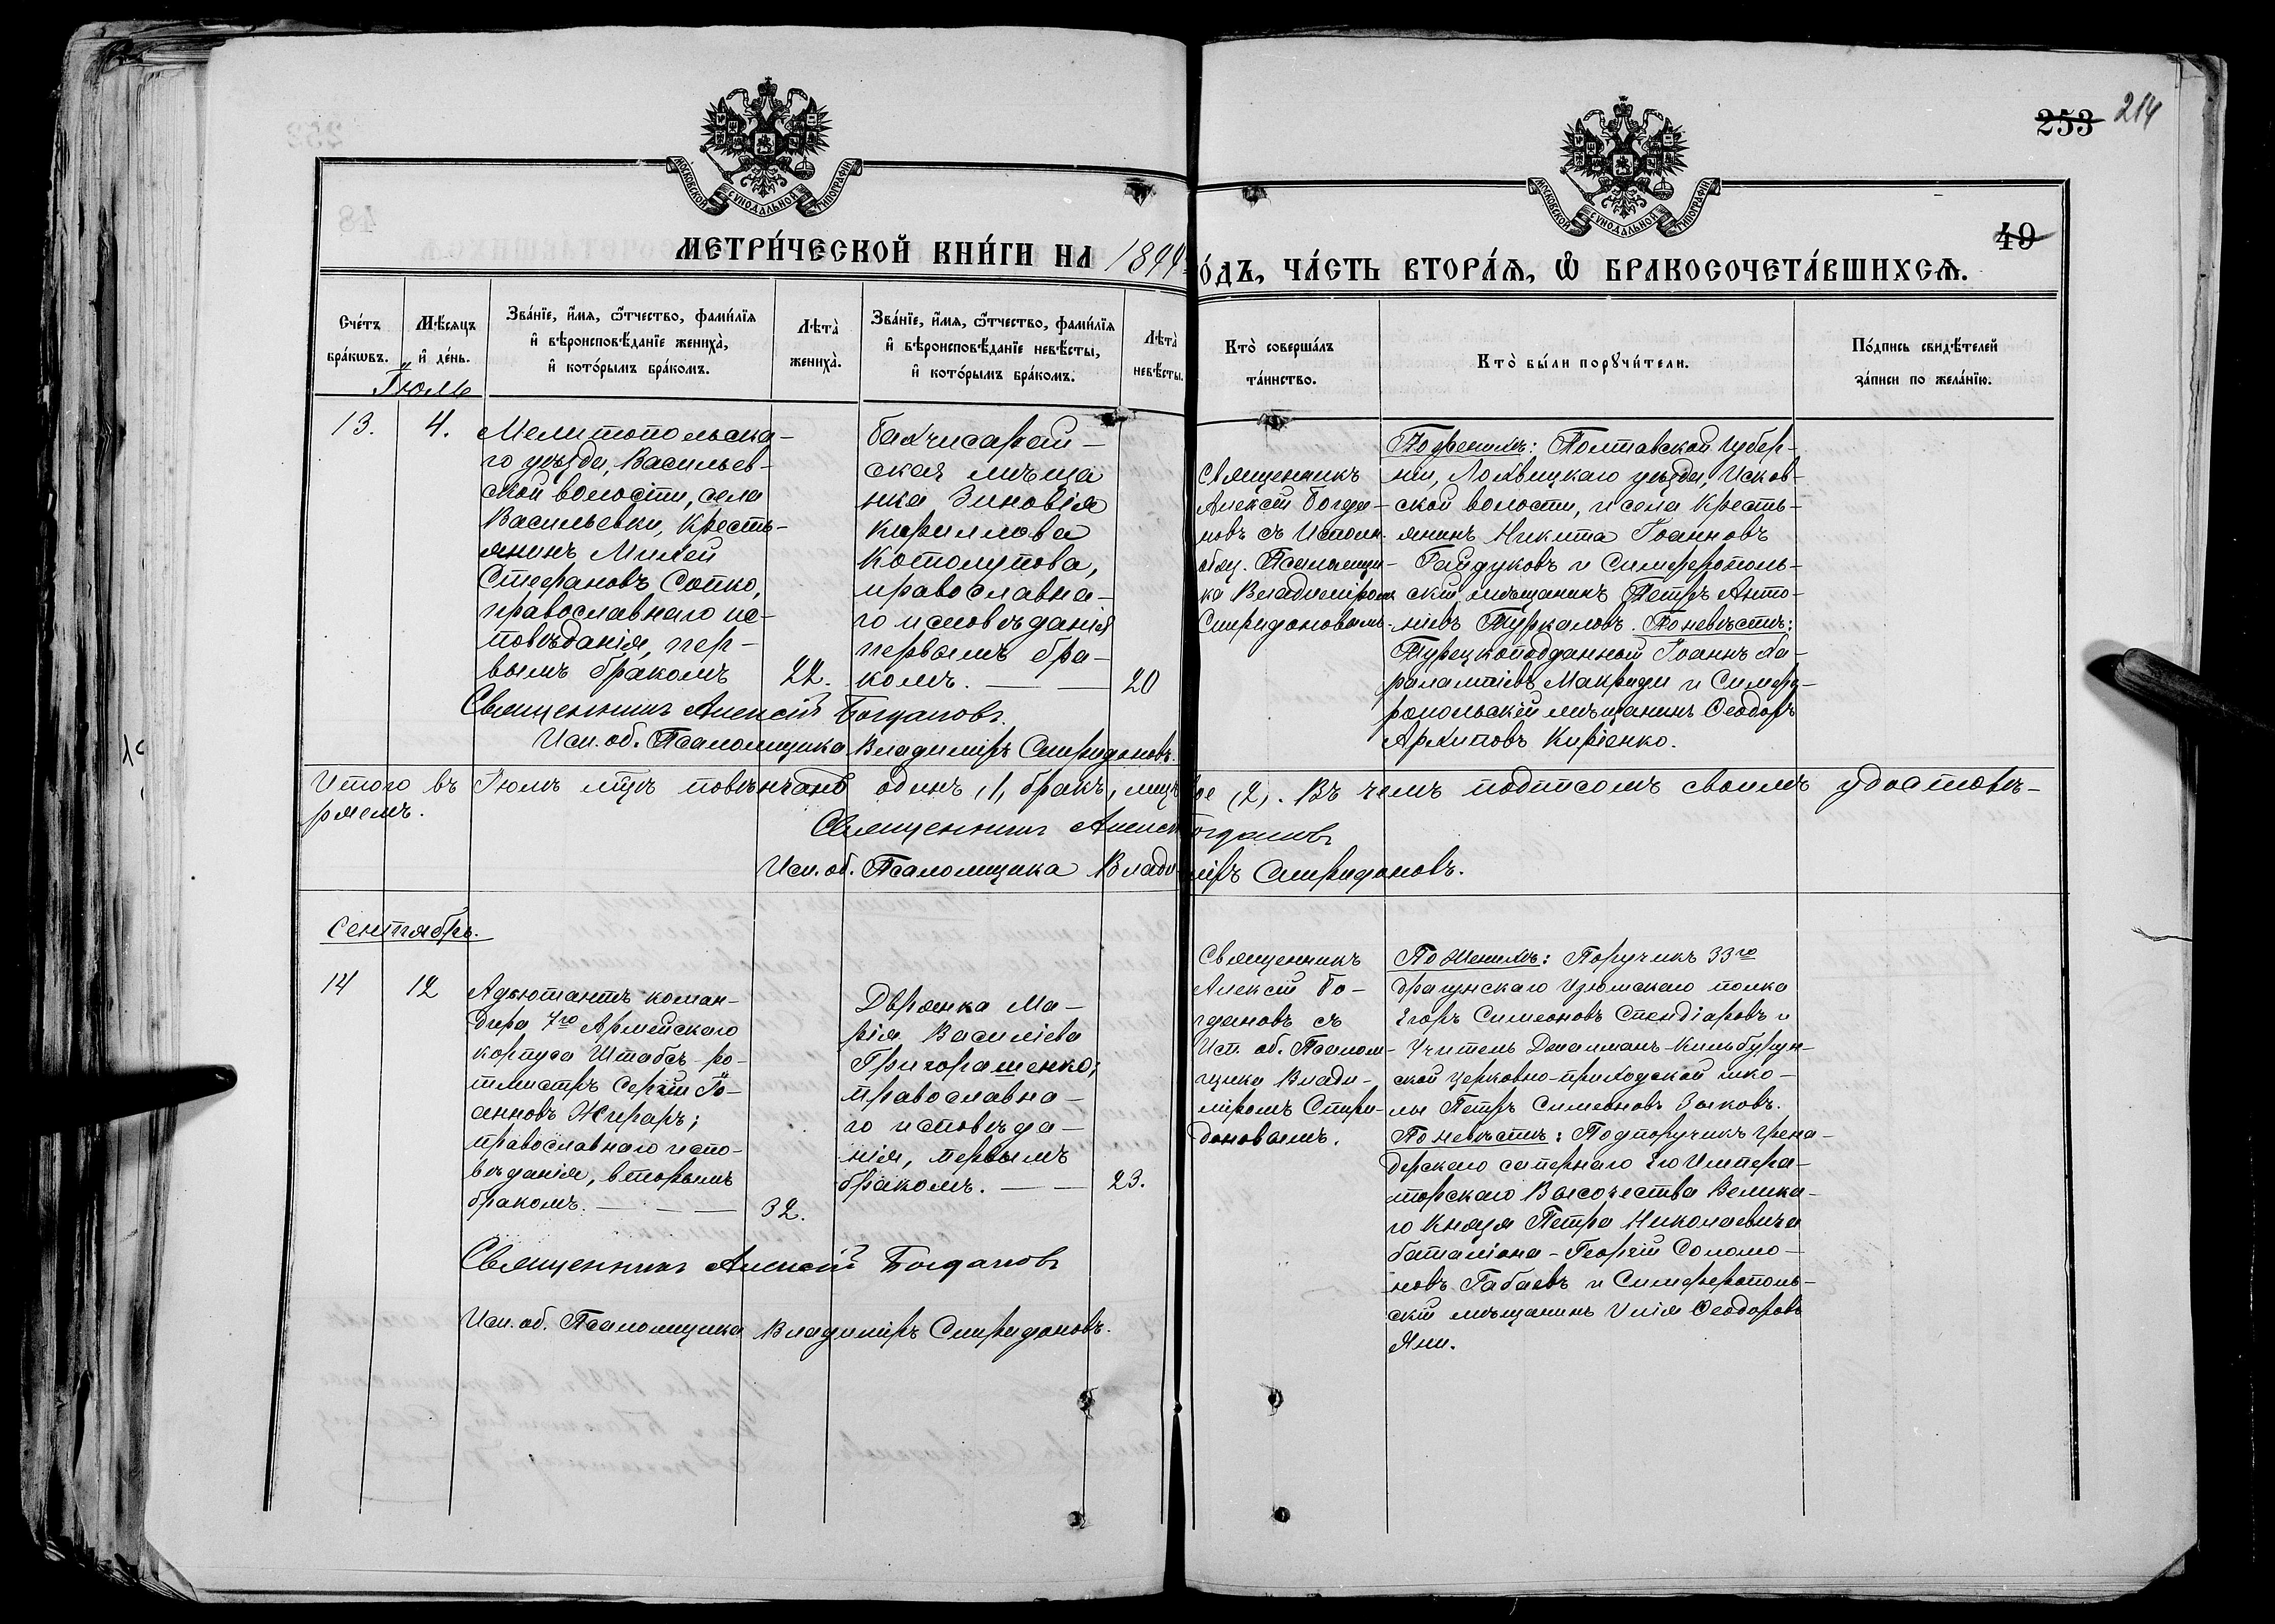 253 214
МОСКОВСКОЙ СУНОДАЛЬНОЙ ТИПОГРАФІИ
МОСКОВСКОЙ СУНОДАЛЬНОЙ ТИПОГРАФІИ
49
МЕТРИ́ЧЕСКОЙ КНИ́ГИ НА 1899
О́ДЪ, ЧА́СТЬ ВТОРА́Я, Ѡ БРАКОСОЧЕТА́ВШИХСѦ.
Сче́тъ бра́кѡвъ.
Мѣ́сяцъ и҆ де́нь.
Зва́нїе, и҆́мя, ѻ҆́тчество, фами́лїя
и҆ вѣроисповѣ́данїе жениха̀,
и҆ кото́рымъ бра́комъ.
Лѣта̀ жениха̀.
Зва́нїе, и҆́мя, ѻ҆́тчество, фами́лїя
и҆ вѣроисповѣ́данїе невѣ́сты,
и҆ кото́рымъ бра́комъ.
Лѣта̀ невѣ́сты.
Кто̀ соверша́лъ
та́инство.
Кто̀ бы́ли порꙋчи́тели.
По́дпись свидѣ́телей
за́писи по жела́нїю.
Іюль
13. 4.
Мелитопольска-
го уѣзда, Васильев-
ской волости, села
Васильевки, кресть-
янинъ Михей
Стефановъ Сопко,
православнаго ис-
повѣданія, пер-
вымъ бракомъ 22.
Бахчисарай-
ская мѣща
нка Зиновія
Кириллова
Котолупова,
православна-
го исповѣданія
первымъ бра-
комъ. — — 20
Священникъ
Алексій Богда-
новъ съ Исполн.
обяз. Псаломщи-
ка Владиміромъ
Спиридоновымъ.
По женихѣ: Полтавской губер-
ніи, Лохвицкаго уѣзда, Исков-
ской волости, и села кресть-
янинъ Никита Іоанновъ
Гайдуковъ и Симферополь-
скій мѣщанинъ Петръ Анто-
ніевъ Туркаловъ. По невѣстѣ:
Турецкоподданный Іоаннъ Ха-
ралампіевъ Макриди и Симфе-
ропольскій мѣщанинъ Ѳеодоръ
Архиповъ Киріенко.
Священникъ Алексій Богдановъ.
Исп. об. Псаломщика Владиміръ Спиридоновъ.
Итого въ Іюлѣ мцѣ повѣнчано одинъ (1) бракъ, лицъ (2). Въ чемъ подписомъ своимъ удостовѣ-
ряемъ.
Священникъ Алексій Богдановъ
Исп. об. Псаломщика Владиміръ Спиридоновъ.
Сентябрь.
14 12
Адъютантъ коман-
дира 7го Армейскаго
корпуса Штабсъ-ро-
тмистръ Сергій Іо-
анновъ Жираръ;
православнаго испо-
вѣданія, вторымъ
бракомъ. — — — 32.
Дворянка Ма-
рія Василіева
Григорашенко;
православна-
го исповѣда-
нія, первымъ
бракомъ. — — 23.
Священникъ
Алексій Бо-
гдановъ съ
Исп. об. Псалом-
щика Влади-
міромъ Спири-
доновымъ.
По женихѣ: Поручикъ 33го
драгунскаго Изюмскаго полка
Егоръ Симеоновъ Спендіаровъ и
Учитель Джалманъ-Кильбурун-
ской церковно-приходской шко-
лы Петръ Симеоновъ Зыковъ.
По невѣстѣ: Подпоручикъ грена-
дерскаго сапернаго Его Импера-
торскаго Высочества Велика-
го Князя Петра Николаевича
баталіона - Георгій Соломо-
новъ Габаевъ и Симферополь-
скій мѣщанинъ Илія Ѳеодоровъ
Яни.
Священникъ Алексій Богдановъ
Исп. об. Псаломщика Владиміръ Спиридоновъ.